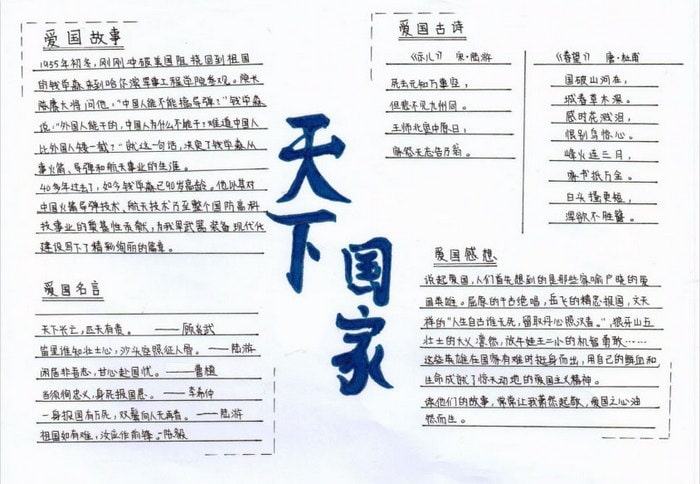 爱国故事
1955年初冬,刚刚冲破美国阻挠回到祖国
的钱学森来到哈尔滨军事工程学院参观。院长
陈赓大将问他:“中国人能不能搞导弹?”钱学森
说:“外国人能干的,中国人为什么不能干?难道中国人
比外国人矮一截?”就这一句话,决定了钱学森从
事火箭、导弹和航天事业的生涯。
40多年过去了,如今钱学森已90岁高龄。他以其对
中国火箭导弹技术、航天技术乃至整个国防高科
技事业的奠基性贡献,为我军武器装备现代化
建设写下了精彩绚丽的篇章。
爱国名言
天下兴亡,匹夫有责。——顾炎武
位卑
里谁知壮士心,沙头空照征人骨。——陆游
闲居非吾志,甘心赴国忧。——曹植
百须徇忠义,身死报国恩。——李希仲
一身报国有万死,双鬓向人无再青。——陆游
祖国如有难,汝应作前锋。—陈毅
天下
国家
爱国古诗
《示儿》 宋·陆游
死去元知万事空,
但悲不见九州同。
王师北定中原日,
家祭无忘告乃翁。
《春望》 唐·杜甫
国破山河在,
城春草木深。
感时花溅泪,
恨别鸟惊心。
烽火连三月,
家书抵万金。
白头搔更短,
浑欲不胜簪。
爱国感想
说起爱国,人们首先想到的是那些家喻户晓的爱
国英雄。屈原的千古绝唱,岳飞的精忠报国,文天
祥的“人生自古谁无死,留取丹心照汗青。”,狼牙山五
壮士的大义凛然,放牛娃王二小的机智勇敢……
这些英雄在国家有难时挺身而出,用自己的鲜血和
生命成就了惊天动地的爱国主义精神。
读他们的故事,常常让我肃然起敬,爱国之心油
然而生。